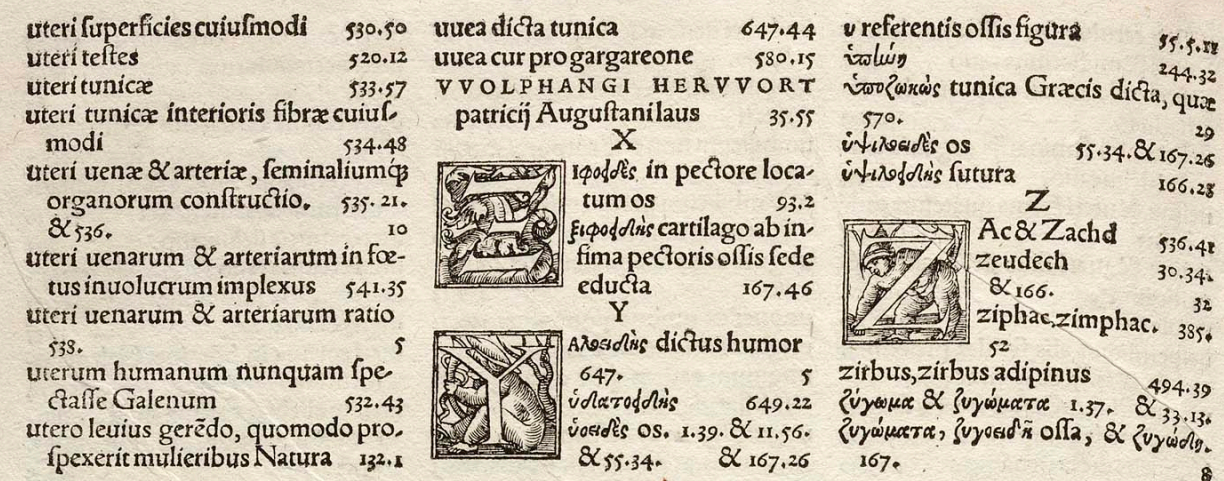 uteri superficies cuiusmodi 530.50
uteri testes 520.12
uteri tunicæ 533.57
uteri tunicæ interioris fibræ cuiuſ-
modi 534.48
uteri uenæ & arteriæ, ſeminaliumq́;
organorum conſtructio. 535.21.
& 536. 10
uteri uenarum & arteriarum in fœ-
tus inuolucrum implexus 541.35
uteri uenarum & arteriarum ratio
538. 5
uterum humanum nunquam ſpe-
ctaſſe Galenum 532.43
utero leuius gerẽdo, quomodo pro-
ſpexerit mulieribus Natura 132.1
uuea dicta tunica 647.44
uuea cur pro gargareone 580.15
VVOLPHANGI HERVVORT
patricij Auguſtani laus 35.55
X
Ξιφοειδὲς in pectore loca-
tum os 93.2
ξιφοειδὴς cartilago ab in-
fima pectoris oſſis ſede
educta 167.46
Y
ΥΑλοειδὴς dictus humor
647. 5
ὑδατοειδὴς 649.22
ὑοειδὲς os. 1.39. & 11.56.
& 55.34. & 167.26
υ referentis oſſis figura 55.5.
244.32
tunica Græcis dicta, quæ
570. 29
ὑψιλοειδὲς os 55.34. & 167.26
ὑψιλοειδὴς ſutura 166.28
Z
ZAc & Zachd 536.41
zeudech 30.34.
& 166. 32
ziphac, zimphac. 385.
52
zirbus, zirbus adipinus 494.39
ζύγωμα & ζυγώματα 1.37. & 33.13.
ζυγώματα, ζυγοειδῆ oſſa, &
167. 8